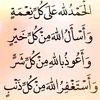 الْحَمْدُ لِلّٰهِ عَلَى كُلِّ نِعْمَةٍ
وَأَسْأَلُ اللّٰهَ مِنْ كُلِّ خَيْرٍ
وَأَعُوذُ بِاللّٰهِ مِنْ كُلِّ شَرٍّ
وَأَسْتَغْفِرُ اللّٰهَ مِنْ كُلِّ ذَنْبٍ